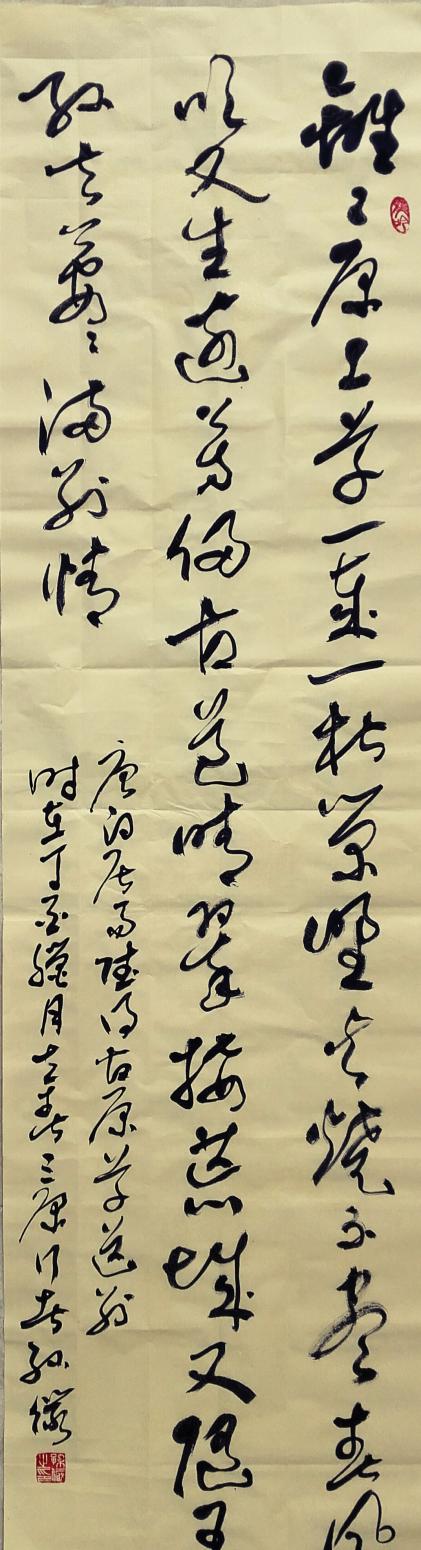 離〻原上草一歲一枯榮野火燒不盡春風
吹又生遠芳侵古道晴翠接荒城又送王
孫去萋〻滿別情
唐白居易賦得古原草送別
時在丁酉臘月立春三原行者孫